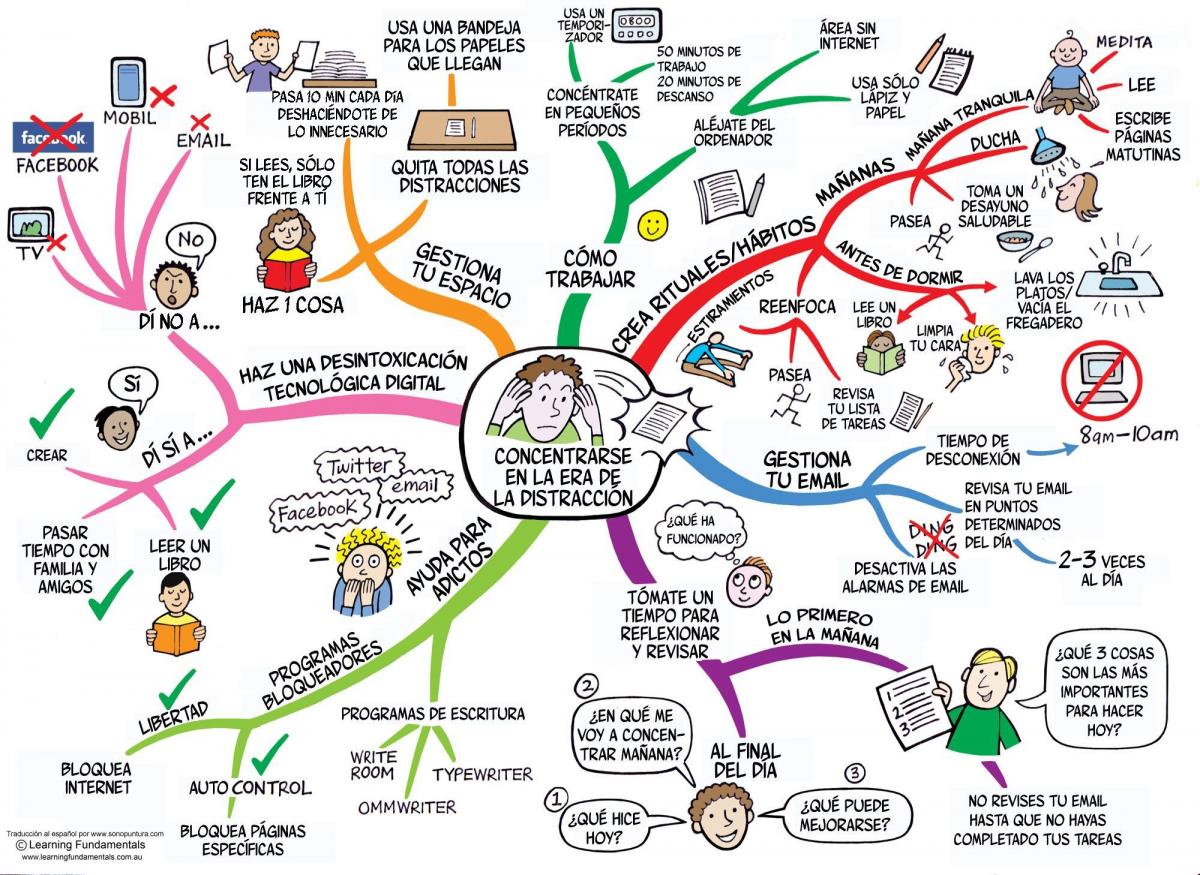 CONCENTRARSE
EN LA ERA DE
LA DISTRACCIÓN
CÓMO
TRABAJAR
CONCÉNTRATE
EN PEQUEÑOS
PERÍODOS
USA UN
TEMPORI-
ZADOR
0800
50 MINUTOS DE
TRABAJO
20 MINUTOS DE
DESCANSO
ALÉJATE DEL
ORDENADOR
ÁREA SIN
INTERNET
USA SÓLO
LÁPIZ Y
PAPEL
CREA RITUALES/HÁBITOS
MAÑANAS
MAÑANA TRANQUILA
MEDITA
LEE
ESCRIBE
PÁGINAS
MATUTINAS
DUCHA
PASEA
TOMA UN
DESAYUNO
SALUDABLE
ANTES DE DORMIR
LAVA LOS
PLATOS/
VACÍA EL
FREGADERO
LEE UN
LIBRO
LIMPIA
TU CARA
REENFOCA
PASEA
REVISA
TU LISTA
DE TAREAS
ESTIRAMIENTOS
GESTIONA
TU EMAIL
TIEMPO DE
DESCONEXIÓN
8am-10am
REVISA TU EMAIL
EN PUNTOS
DETERMINADOS
DEL DÍA
2-3 VECES
AL DÍA
DING
DING
DESACTIVA LAS
ALARMAS DE EMAIL
TÓMATE UN
TIEMPO PARA
REFLEXIONAR
Y REVISAR
¿QUÉ HA
FUNCIONADO?
LO PRIMERO
EN LA MAÑANA
1
2
3
¿QUÉ 3 COSAS
SON LAS MÁS
IMPORTANTES
PARA HACER
HOY?
NO REVISES TU EMAIL
HASTA QUE NO HAYAS
COMPLETADO TUS TAREAS
AL FINAL
DEL DÍA
1
¿QUÉ HICE
HOY?
2
¿EN QUÉ ME
VOY A CONCEN-
TRAR MAÑANA?
3
¿QUÉ PUEDE
MEJORARSE?
AYUDA PARA
ADICTOS
Twitter
email
Facebook
PROGRAMAS
BLOQUEADORES
LIBERTAD
BLOQUEA
INTERNET
AUTO CONTROL
BLOQUEA PÁGINAS
ESPECÍFICAS
PROGRAMAS DE ESCRITURA
WRITE
ROOM
OMMWRITER
TYPEWRITER
HAZ UNA DESINTOXICACIÓN
TECNOLÓGICA DIGITAL
DÍ NO A ...
No
TV
facebook
FACEBOOK
MOBIL
EMAIL
DÍ SÍ A ...
Sí
CREAR
PASAR
TIEMPO CON
FAMILIA Y
AMIGOS
LEER UN
LIBRO
GESTIONA
TU ESPACIO
PASA 10 MIN CADA DÍA
DESHACIÉNDOTE DE
LO INNECESARIO
USA UNA BANDEJA
PARA LOS PAPELES
QUE LLEGAN
QUITA TODAS LAS
DISTRACCIONES
SI LEES, SÓLO
TEN EL LIBRO
FRENTE A TÍ
HAZ 1 COSA
Traducción al español por www.sonopuntura.com
© Learning Fundamentals
www.learningfundamentals.com.au